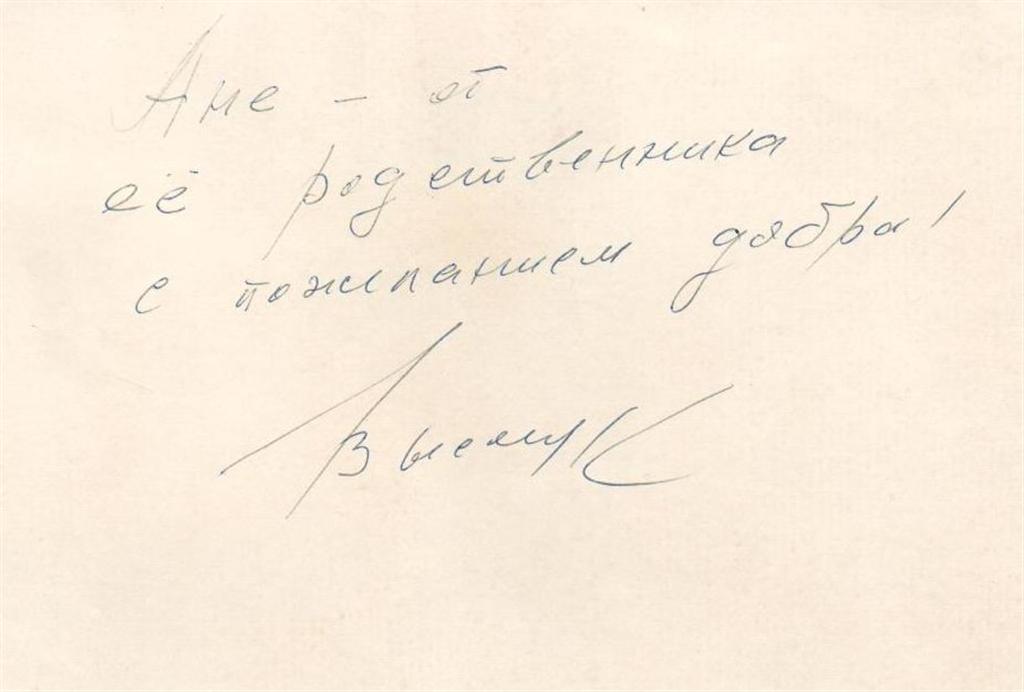 Ане – от
её родственника
с пожеланием добра!